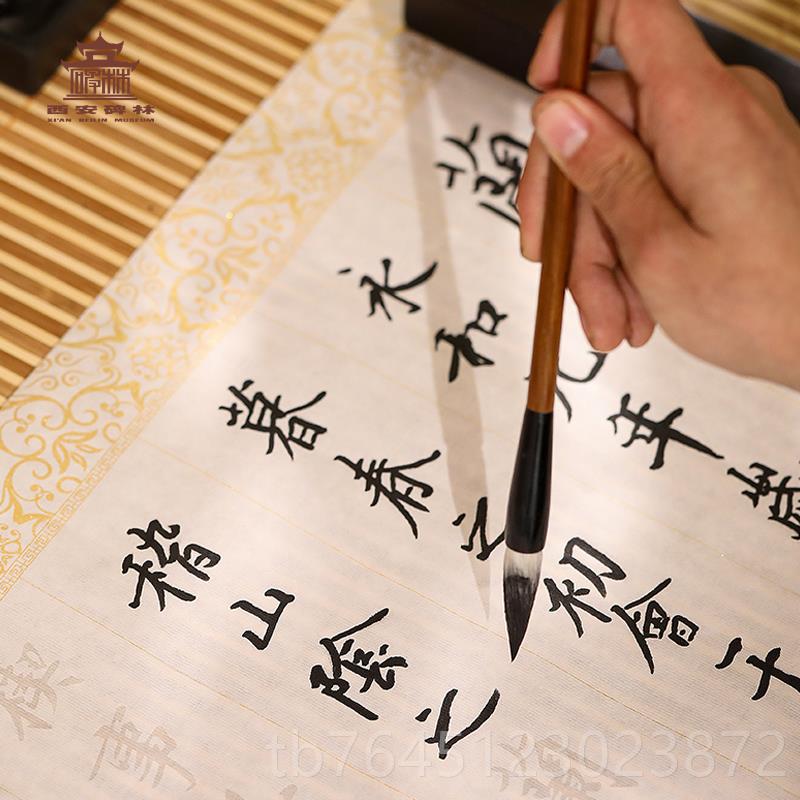 西安碑林
XI'AN BEILIN MUSEUM
蘭
永和九年歲
暮春之初會于
稽山陰之
禊事
tb7645123023872